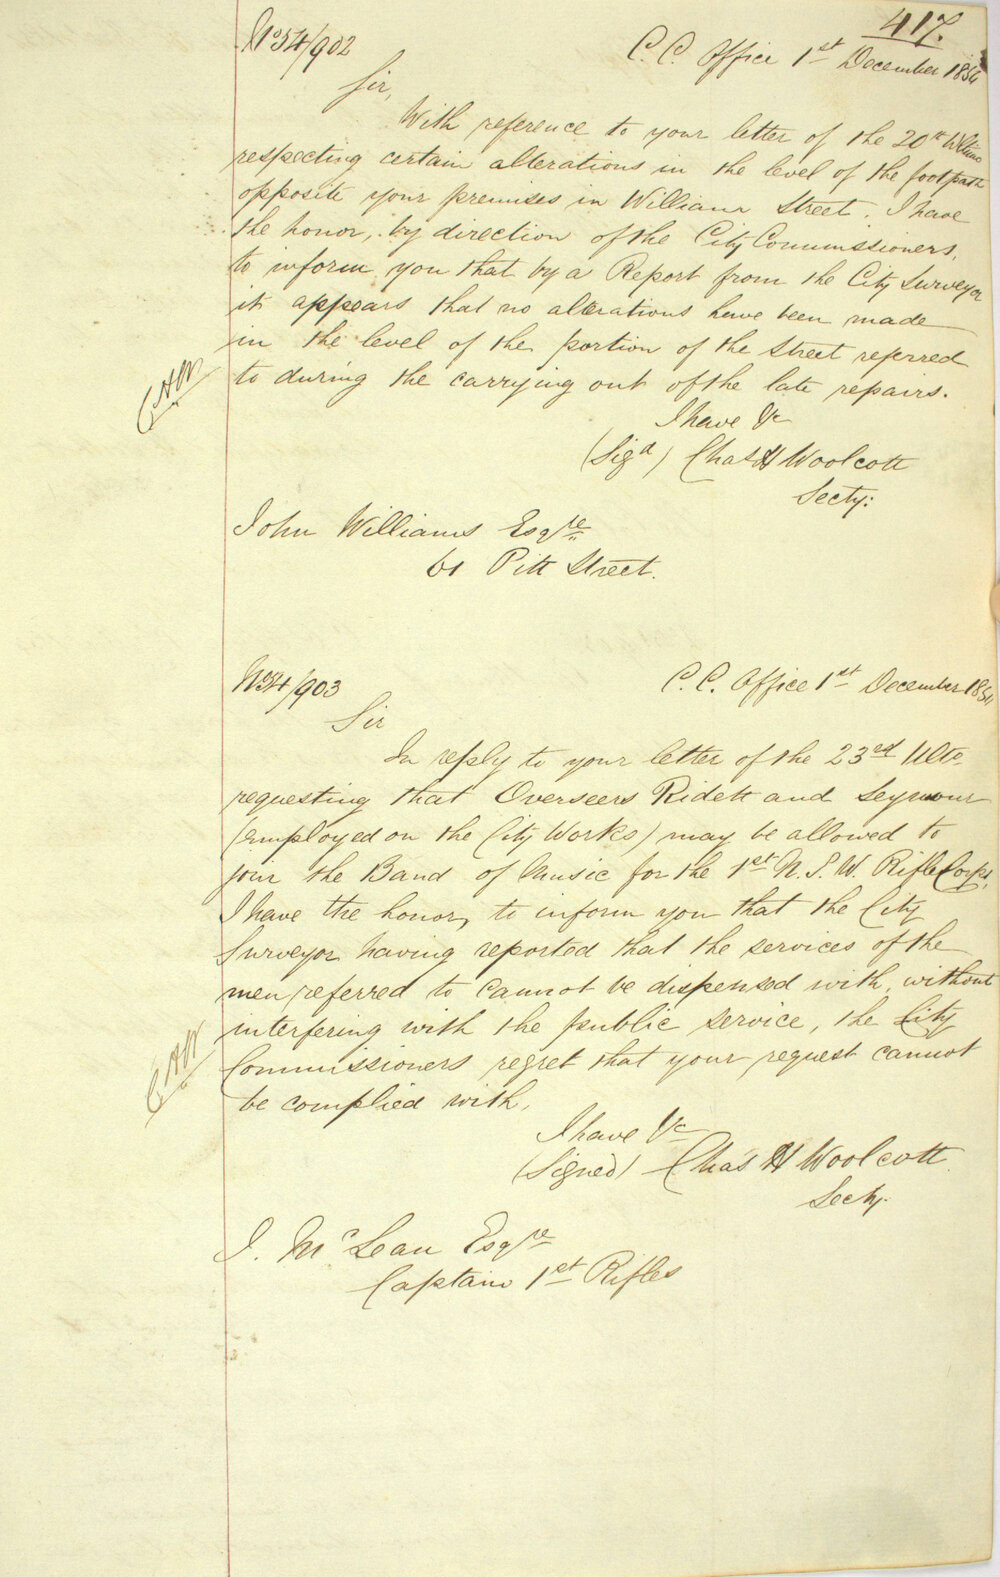 417.
No 54/902
C. C. Office 1st December 1854
Sir,
With reference to your letter of the 20th Ultimo
respecting certain alterations in the level of the footpath
opposite your premises in William Street. I have
the honor, by direction of the City Commissioners,
to inform you that by a Report from the City Surveyor
it appears that no alterations have been made
in the level of the portion of the Street referred
to during the carrying out of the late repairs.
CHW
I have &c
(Sigd) Chas H Woolcott
Secty:
John Williams Esqre
61 Pitt Street.
No 54/903
C. C. Office 1st December 1854
Sir
In reply to your letter of the 23rd Ulto.
requesting that Overseers Ridett and Seymour
(employed on the City Works) may be allowed to
join the Band of Music for the 1st N. S. W. Rifle Corps,
I have the honor, to inform you that the City
Surveyor having reported that the services of the
men referred to cannot be dispensed with, without
interfering with the public service, the City
Commissioners regret that your request cannot
be complied with.
CHW
I have &c
(Signed) Chas H Woolcott
Secty.
J. McLean Esqre
Captain 1st Rifles